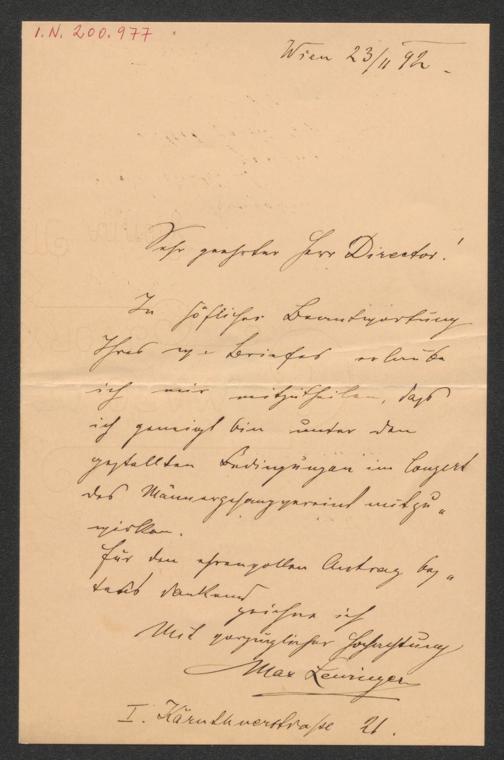 I. N. 200.977
Wien 23/II 92
Sehr geehrter Herr Director!
In höflicher Beantwortung
Ihres w. Briefes erlaube
ich mir mitzutheilen, dass
ich geneigt bin unter den
gestellten Bedingungen im Conzert
des Männergesangvereins mitzu„
wirken.
Für den ehrenvollen Antrag bes„
tens dankend
zeichne ich
Mit vorzüglicher Hochachtung
Max Lewinger
I. Kärnthnerstraße 21.